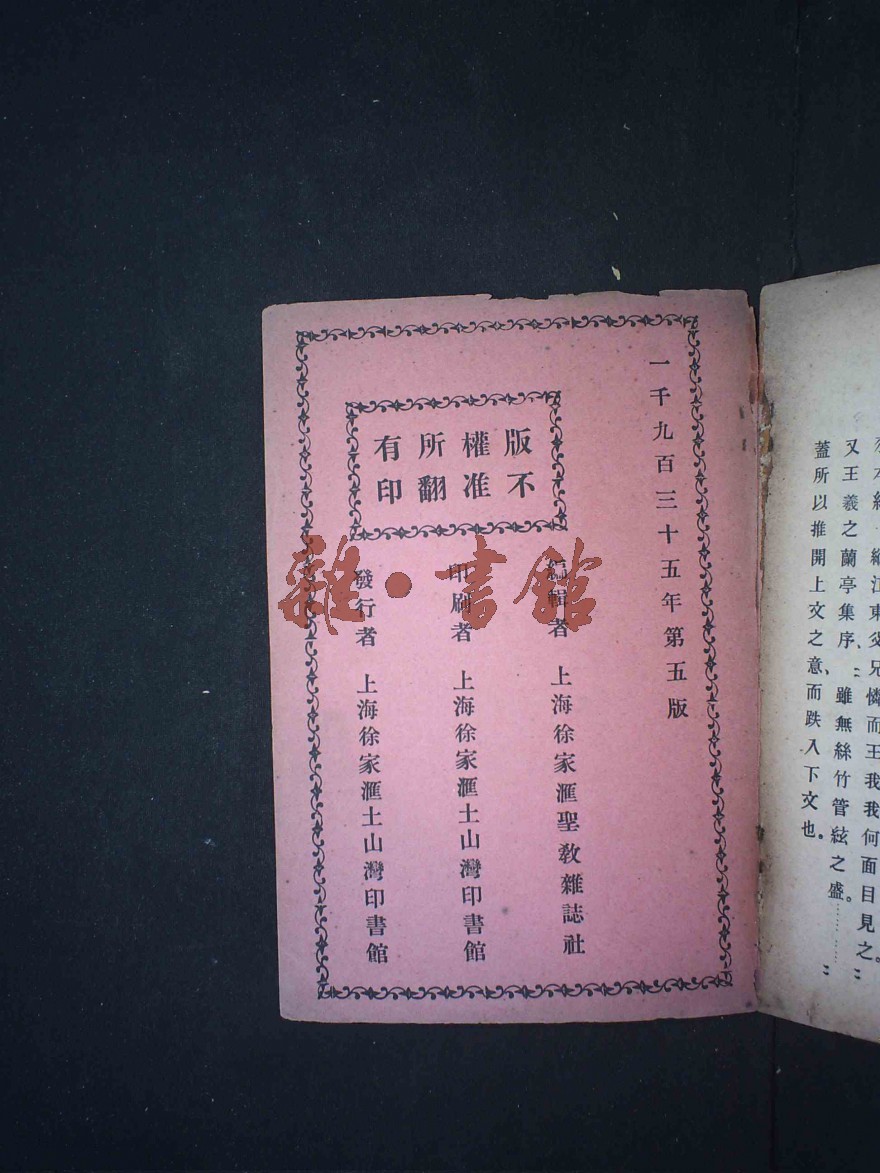 又王羲之蘭亭集序、：雖無絲竹管絃之盛。……：
蓋所以推開上文之意、而跌入下文也。
一千九百三十五年第五版
版權所有
不准翻印
編輯者 上海徐家滙聖教雜誌社
印刷者 上海徐家滙土山灣印書館
發行者 上海徐家滙土山灣印書館
雜·書館